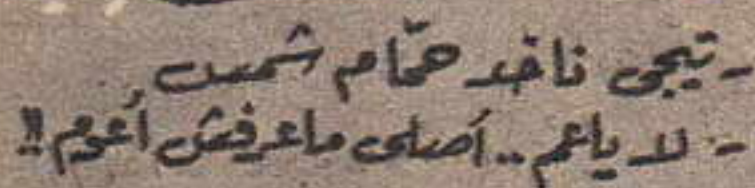 - تيجى ناخد حمّام شمس
- لا ياعم .. أصلى ماعرفش أعوم !!